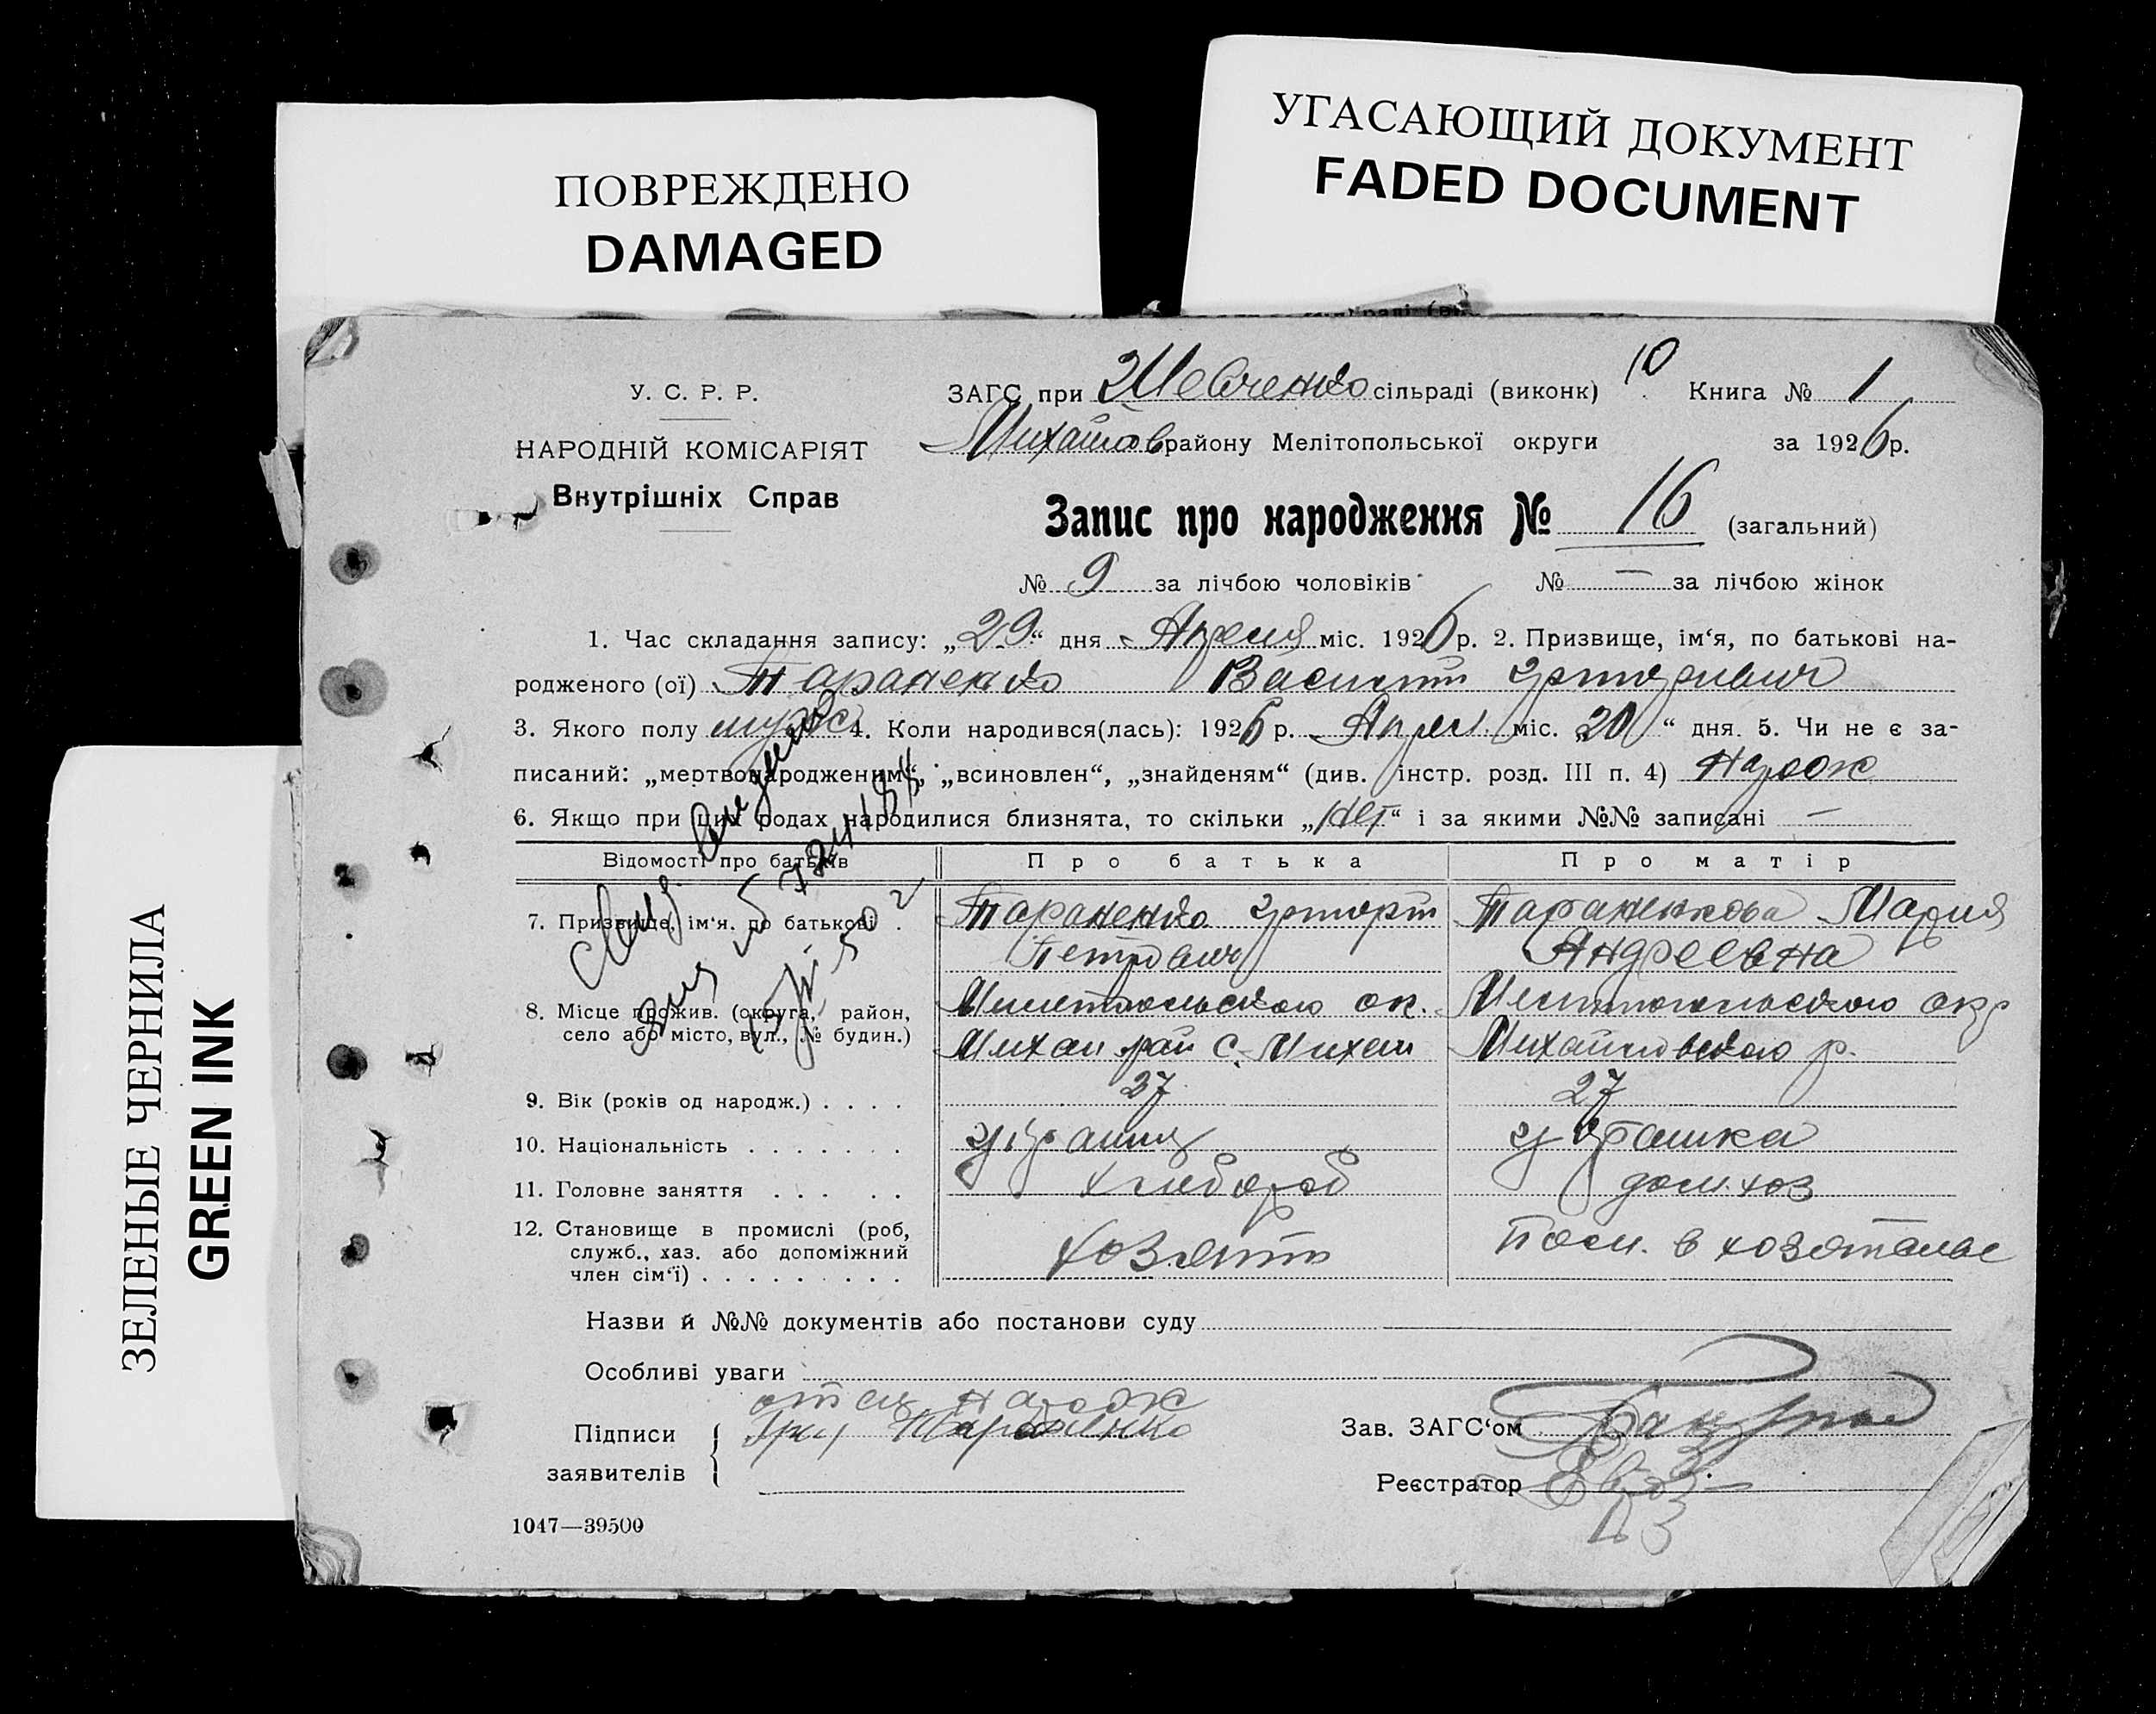 ПОВРЕЖДЕНО
DAMAGED
УГАСАЮЩИЙ ДОКУМЕНТ
FADED DOCUMENT
ЗЕЛЕНЫЕ ЧЕРНИЛА
GREEN INK
У. С. Р. Р.
НАРОДНІЙ КОМІСАРІЯТ
Внутрішніх Справ
10
ЗАГС при Шевченко сільраді (виконк) Книга № 1
Михайлов району Мелітопольської округи за 1926 р.
Запис про народження № 16 (загальний)
№ 9 за лічбою чоловіків № — за лічбою жінок
1. Час складання запису: „29“ дня Апреля міс. 1926 р. 2. Призвище, ім‘я, по батькові на-
родженого (ої) Тараненко Василий
3. Якого полу мужс 4. Коли народився(лась): 1926 р. Апрел міс. „20“ дня. 5. Чи не є за-
писаний: „мертвонародженим“, „всиновлен“, „знайденям“ (див. інстр. розд. III п. 4)
6. Якщо при цих родах народилися близнята, то скільки „нет“ і за якими №№ записані —
Відомості про батьків Про батька Про матір
7. Призвище, ім‘я. по батькові . Тараненко Тараненкова Мария
Петрович Андреевна
8. Місце прожив. (округа, район, Мелитопольского ок. Мелитопольского окр
село або місто, вул., № будин.) Михай рай с. Михай Михайловского р.
9. Вік (років од народж.) . . . . 37 27
10. Національність . . . . . . .
11. Головне заняття . . . . . хлебороб дом. хоз
12. Становище в промислі (роб,
служб., хаз. або допоміжний
член сім‘ї) . . . . . . . . . хозяин в
Назви й №№ документів або постанови суду
Особливі уваги
отец
Підписи Тараненко
заявителів
Зав. ЗАГС‘ом
Реєстратор
1047—39500